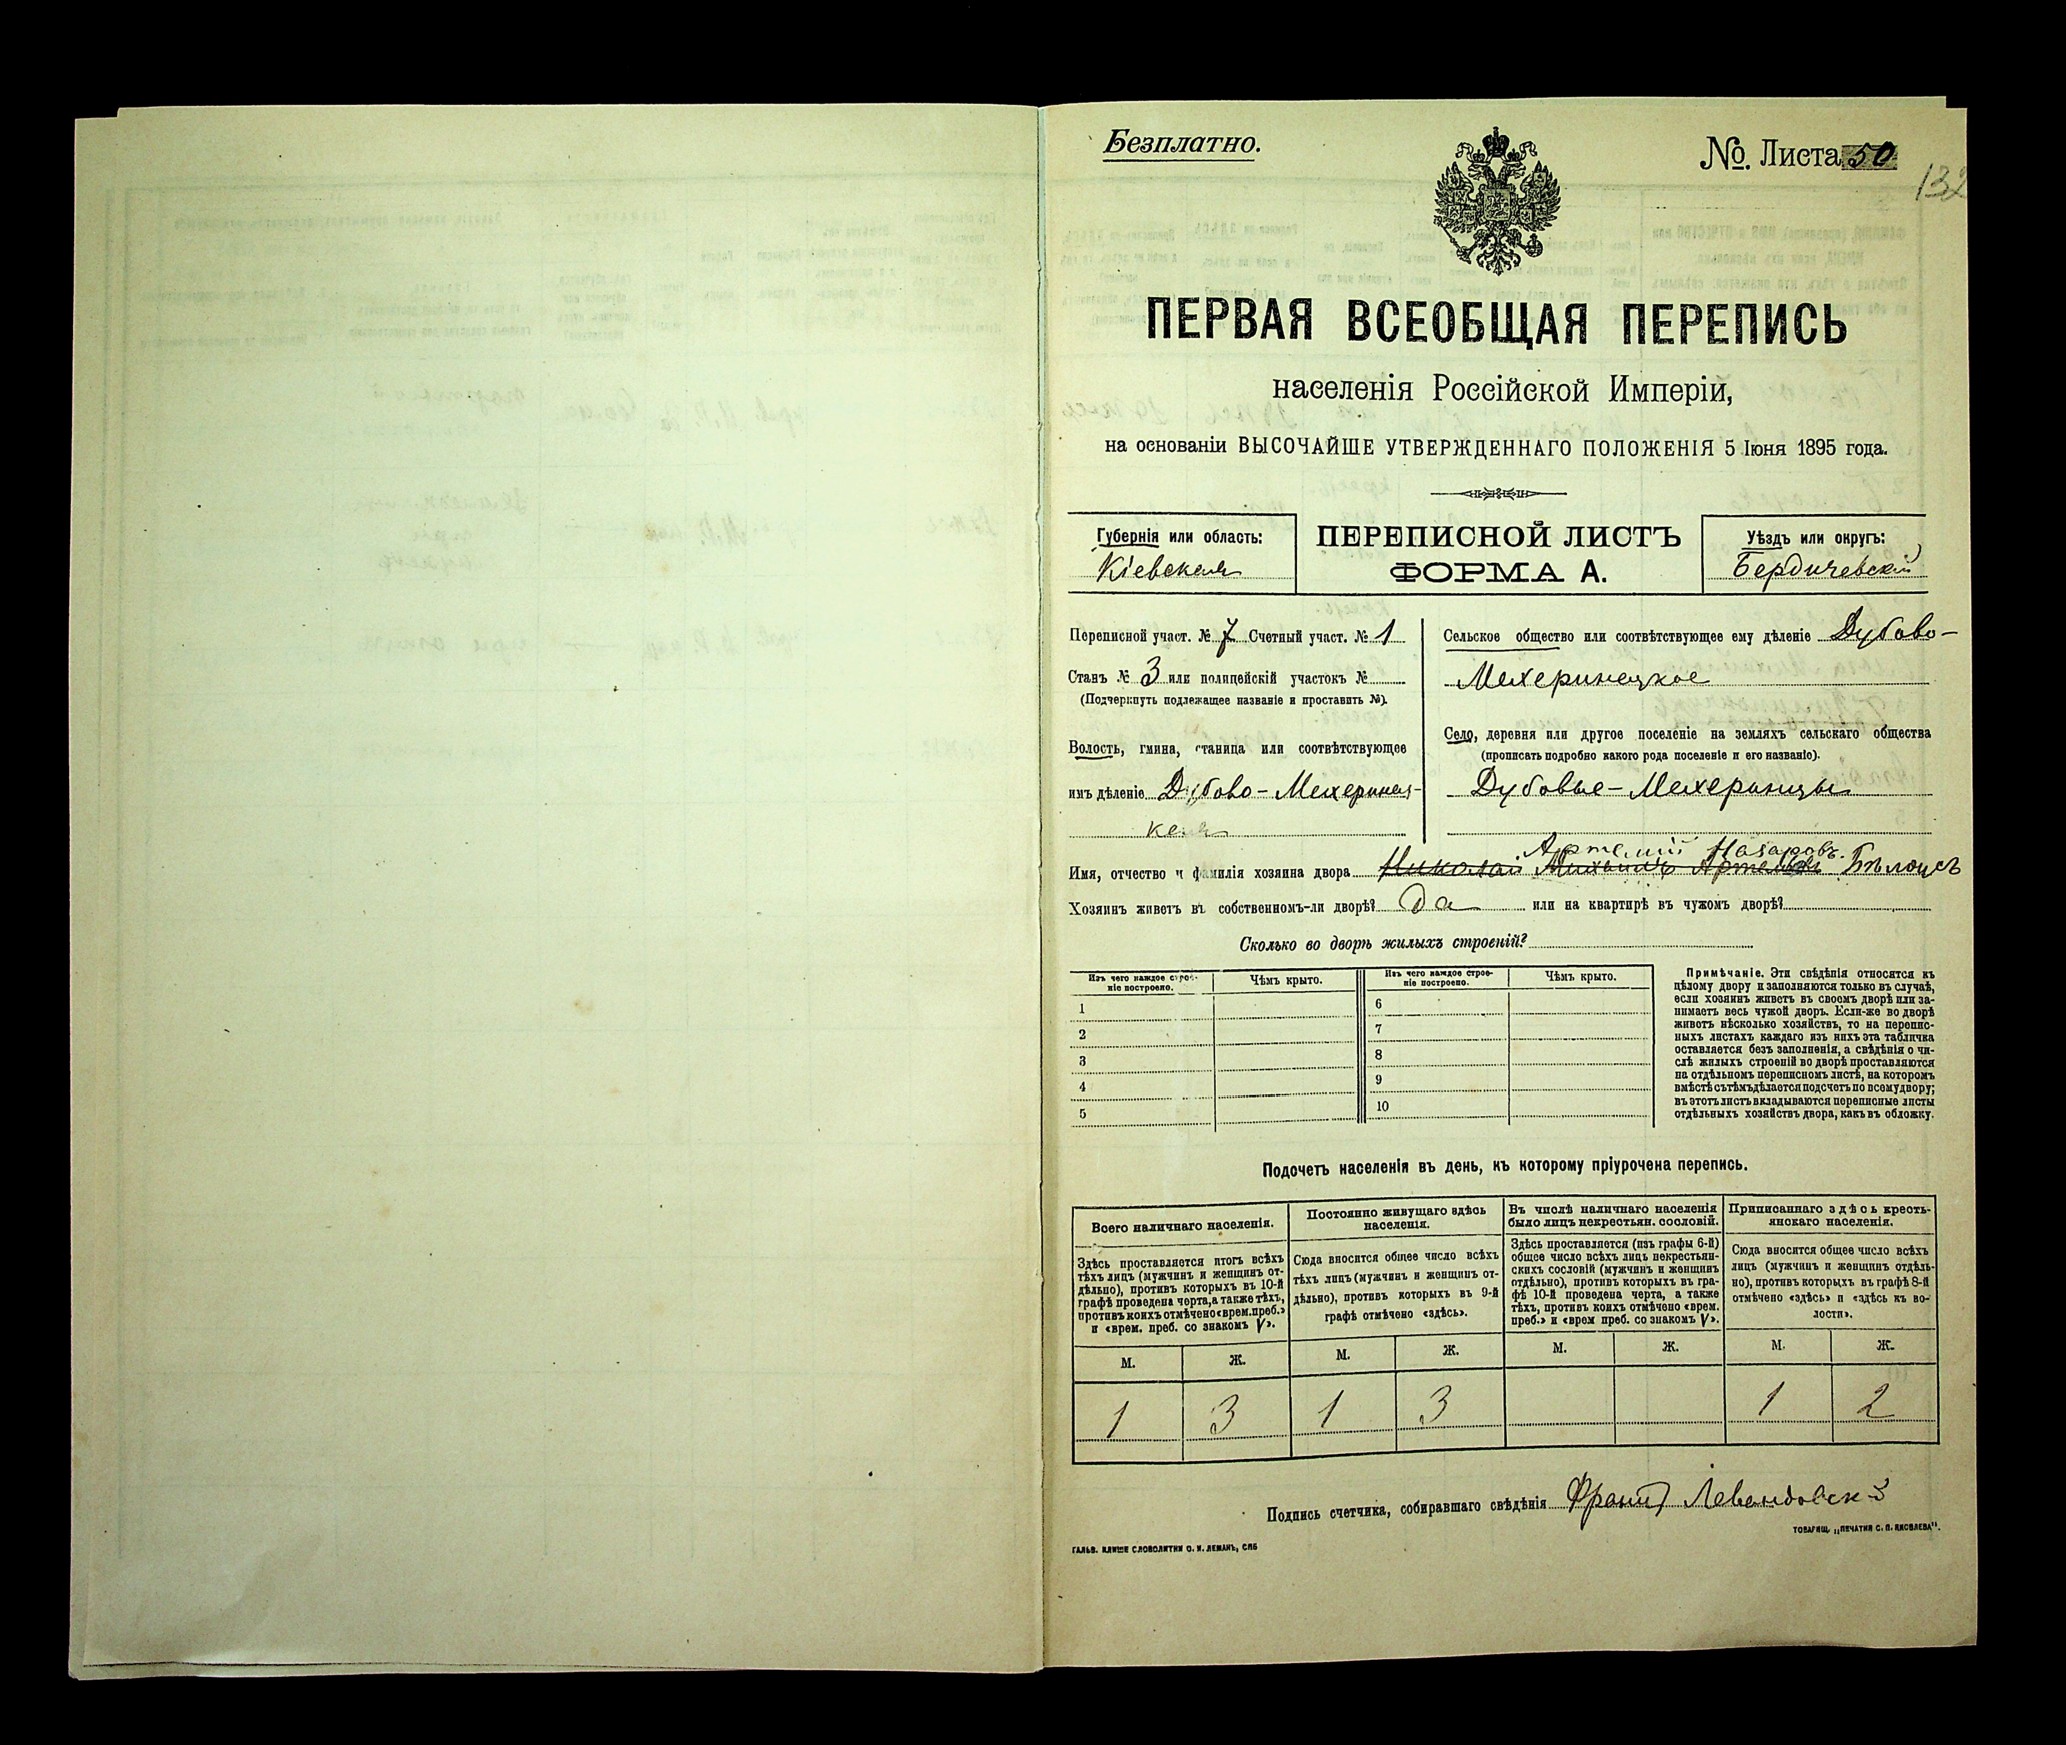 Безплатно.
№ Листа 50
132
ПЕРВАЯ ВСЕОБЩАЯ ПЕРЕПИСЬ
населенія Россійской Имперіи,
на основаніи ВЫСОЧАЙШЕ УТВЕРЖДЕННАГО ПОЛОЖЕНІЯ 5 Іюня 1895 года.
Губернія или область:
Кіевская
ПЕРЕПИСНОЙ ЛИСТЪ
ФОРМА А.
Уѣздъ или округъ:
Бердичевскій
Переписной участ. № 7 Счетный участ. № 1
Станъ № 3 или полицейскій участокъ №
(Подчеркнуть подлежащее названіе и проставить №).
Волость, гмина, станица или соотвѣтствующее
имъ дѣленіе Дубово-Мехеринец-
кая
Сельское общество или соотвѣтствующее ему дѣленіе Дубово-
Мехеринецкое
Село, деревня или другое поселеніе на земляхъ сельскаго общества
(прописать подробно какого рода поселеніе и его названіе).
Дубовые-Мехеринцы
Артемій Назаровъ
Имя, отчество и фамилія хозяина двора Николай Михаилъ Артемовъ Бѣлоусъ
Хозяинъ живетъ въ собственномъ-ли дворѣ? Да или на квартирѣ въ чужомъ дворѣ?
Сколько во дворѣ жилыхъ строеній?
Изъ чего каждое строе-
ніе построено.
Чѣмъ крыто.
Изъ чего каждое строе-
ніе построено.
Чѣмъ крыто.
1
2
3
4
5
6
7
8
9
10
Примѣчаніе. Эти свѣдѣнія относятся къ
цѣлому двору и заполняются только въ случаѣ,
если хозяинъ живетъ въ своемъ дворѣ или за-
нимаетъ весь чужой дворъ. Если-же во дворѣ
живетъ нѣсколько хозяйствъ, то на перепис-
ныхъ листахъ каждаго изъ нихъ эта табличка
оставляется безъ заполненія, а свѣдѣнія о чи-
слѣ жилыхъ строеній во дворѣ проставляются
на отдѣльномъ переписномъ листѣ, на которомъ
вмѣстѣ съ тѣмъ дѣлается подсчетъ по всему двору;
въ этотъ листъ вкладываются переписные листы
отдѣльныхъ хозяйствъ двора, какъ въ обложку.
Подочетъ населенія въ день, къ которому пріурочена перепись.
Всего наличнаго населенія.
Здѣсь проставляется итогъ всѣхъ
тѣхъ лицъ (мужчинъ и женщинъ от-
дѣльно), противъ которыхъ въ 10-й
графѣ проведена черта, а также тѣхъ,
противъ коихъ отмѣчено «врем. преб.»
и «врем. преб. со знакомъ V».
Постоянно живущаго здѣсь
населенія.
Сюда вносится общее число всѣхъ
тѣхъ лицъ (мужчинъ и женщинъ от-
дѣльно), противъ которыхъ въ 9-й
графѣ отмѣчено «здѣсь».
Въ числѣ наличнаго населенія
было лицъ некрестьян. сословій.
Здѣсь проставляется (изъ графы 6-й)
общее число всѣхъ лицъ некрестьян-
скихъ сословій (мужчинъ и женщинъ
отдѣльно), противъ которыхъ въ гра-
фѣ 10-й проведена черта, а также
тѣхъ, противъ коихъ отмѣчено «врем.
преб.» и «врем преб. со знакомъ V».
Приписаннаго здѣсь кресть-
янскаго населенія.
Сюда вносится общее число всѣхъ
лицъ (мужчинъ и женщинъ отдѣль-
но), противъ которыхъ въ графѣ 8-й
отмѣчено «здѣсь» и «здѣсь къ во-
лости».
М. Ж. М. Ж. М. Ж. М. Ж.
1 3 1 3 1 2
Подпись счетчика, собиравшаго свѣдѣнія Францъ Левандовскі
ГАЛЬВ. КЛИШЕ СЛОВОЛИТНИ О. И. ЛЕМАНЪ, СПБ
ТОВАРИЩ. „ПЕЧАТНЯ С. П. ЯКОВЛЕВА".